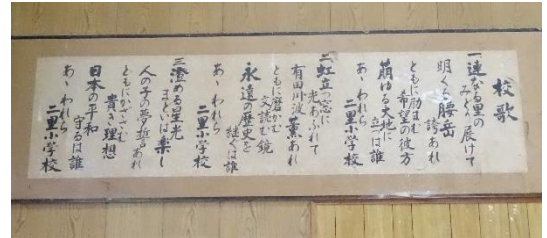 校歌
一連なる里の
みどり展けて
明くる腰岳
誇あれ
ともに励まむ
希望の彼方
萌ゆる大地に
立つは誰
あゝわれら
二里小学校
二虹立つ空に
光あふれて
有田川波
薫あれ
ともに磨かむ
文読む鏡
永遠の歴史を
継ぐは誰
あゝわれら
二里小学校
三澄める星光
まどいは楽し
人の子の夢
誓あれ
ともにかざさむ
貴き理想
日本の平和
守るは誰
あゝわれら
二里小学校